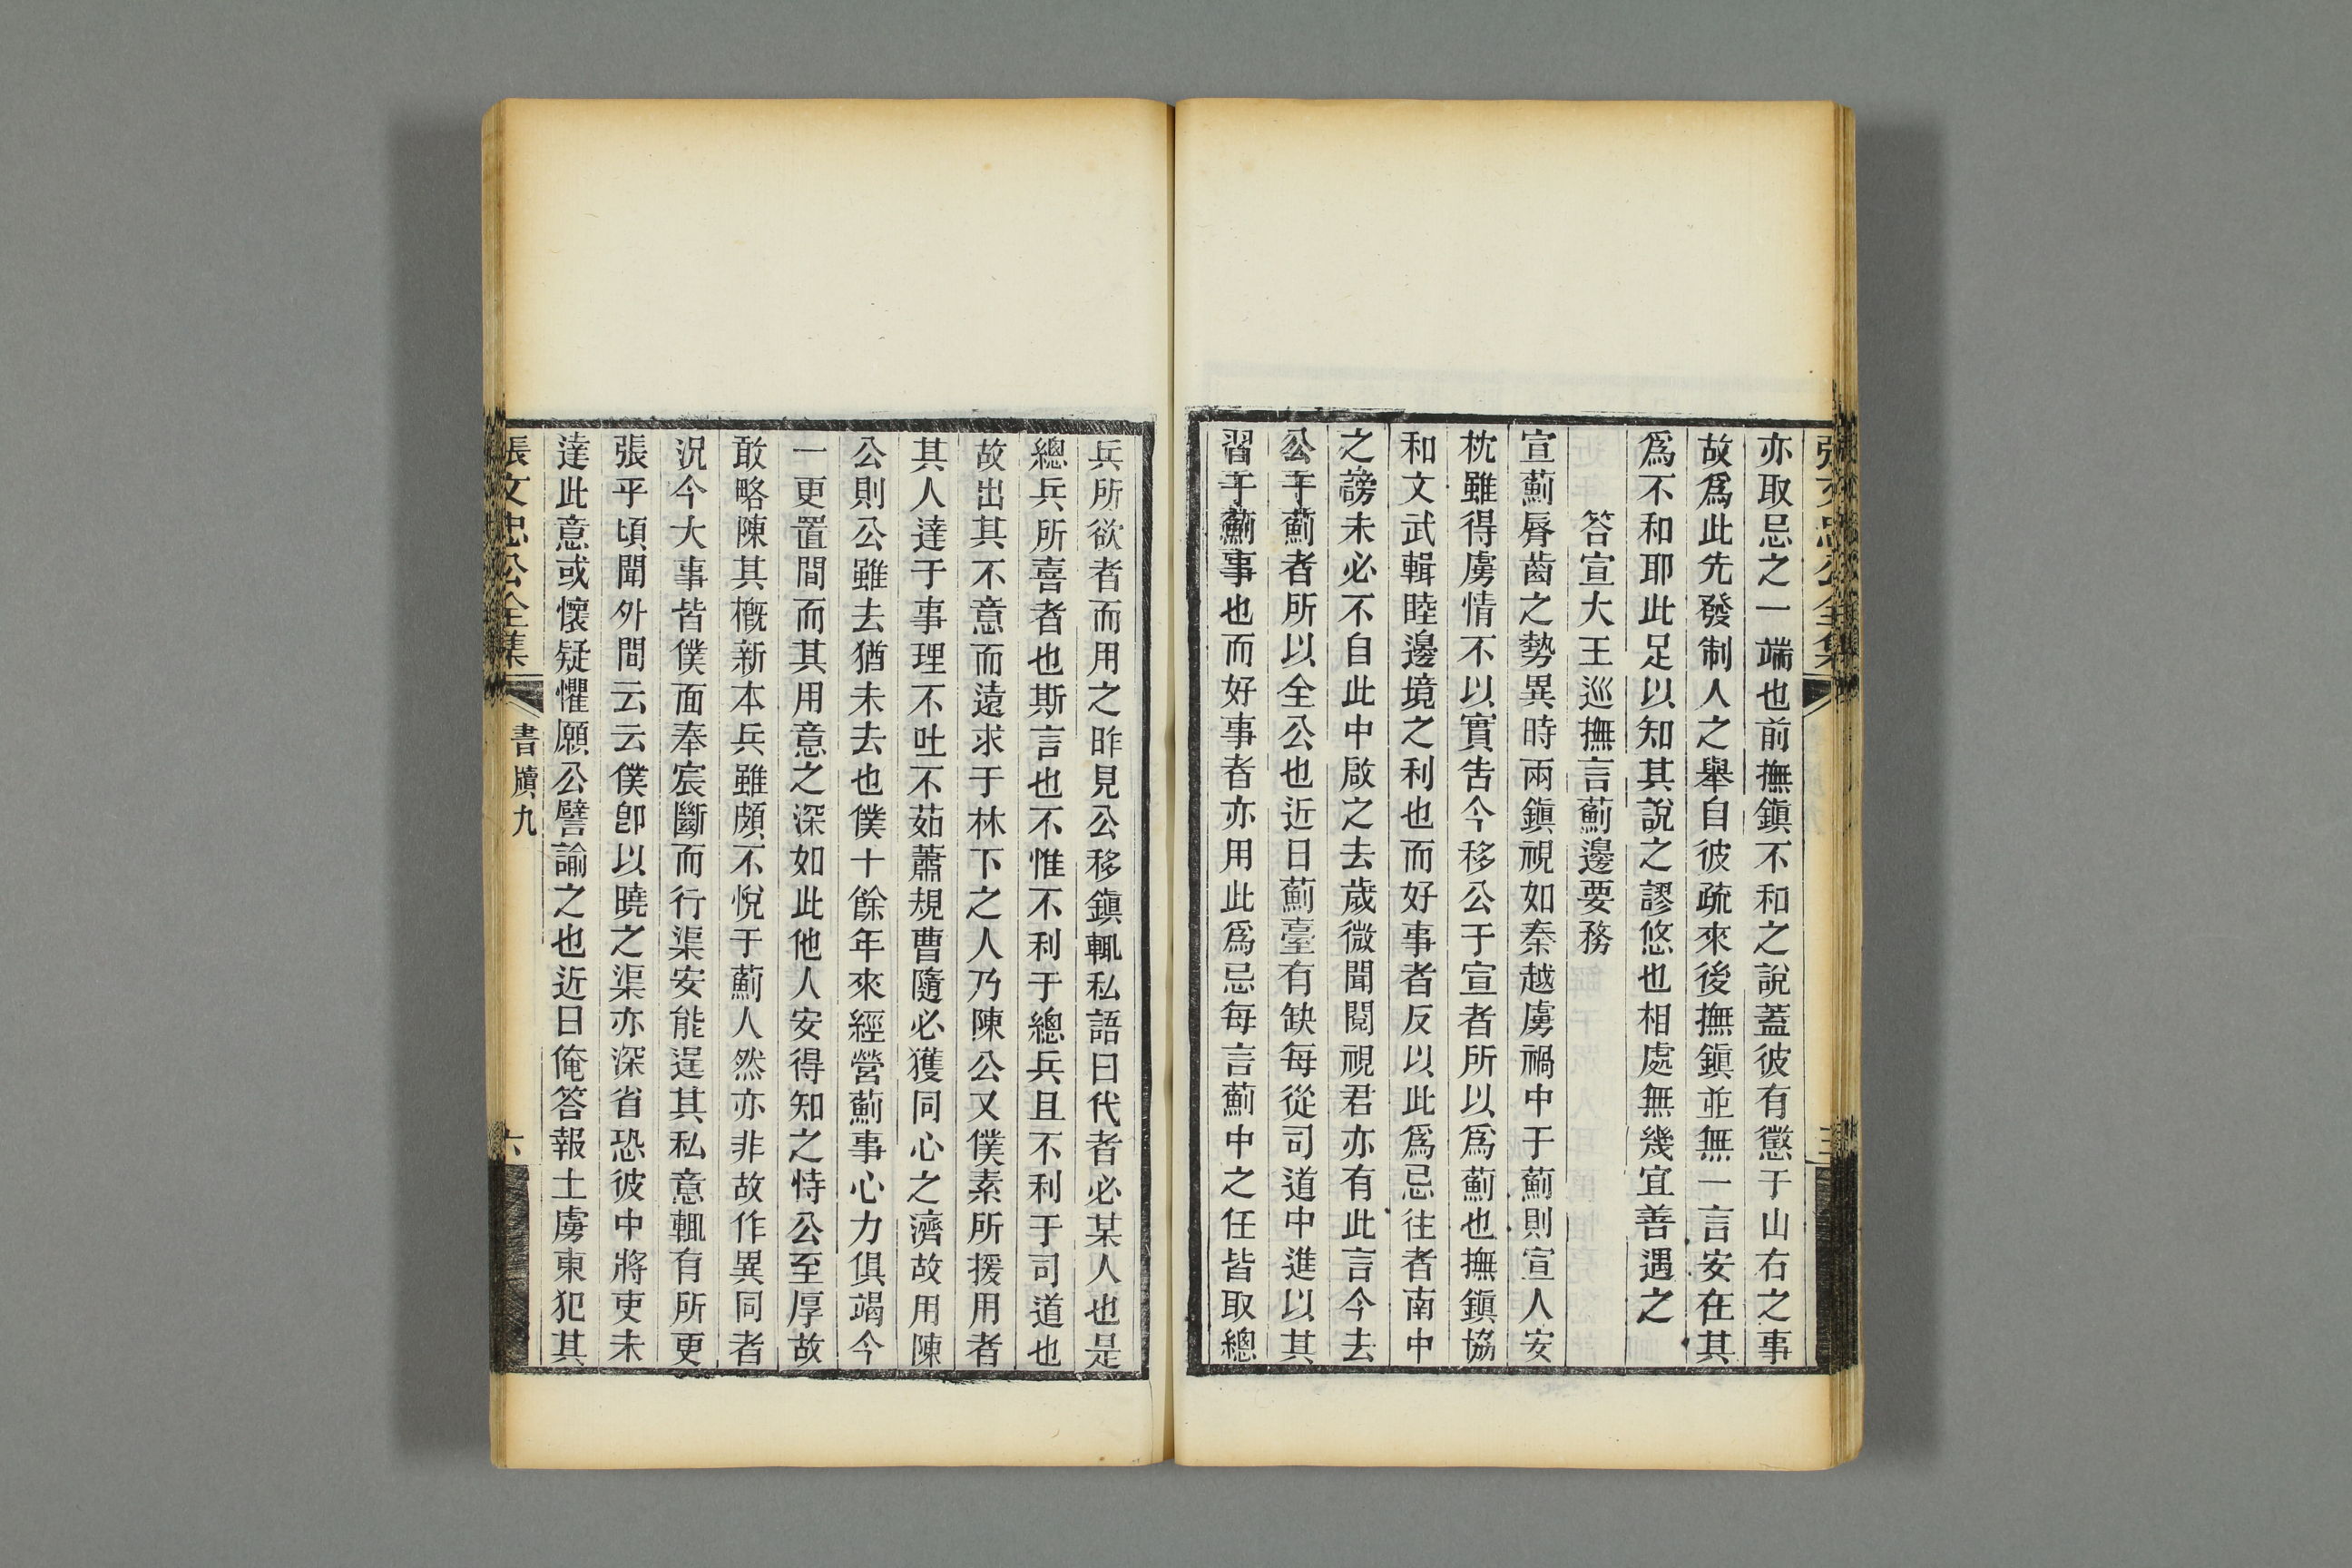 亦取忌之一端也前撫鎭不和之說蓋彼有懲于山右之事
故爲此先發制人之舉自彼疏來後撫鎭並無一言安在其
爲不和耶此足以知其說之謬悠也相處無幾宜善遇之
答宣大王巡撫言薊邊要務
宣薊脣齒之勢異時兩鎭視如秦越虜禍中于薊則宣人安
枕雖得虜情不以實告今移公于宣者所以爲薊也撫鎭協
和文武輯睦邊境之利也而好事者反以此爲忌往者南中
之謗未必不自此中啟之去歲微聞閱視君亦有此言今去
公于薊者所以全公也近日薊臺有缺每從司道中進以其
習于薊事也而好事者亦用此爲忌每言薊中之任皆取總
兵所欲者而用之昨見公移鎭輒私語曰代者必某人也是
總兵所喜者也斯言也不惟不利于總兵且不利于司道也
故出其不意而遠求于林下之人乃陳公又僕素所援用者
其人達于事理不吐不茹蕭規曹隨必獲同心之濟故用陳
公則公雖去猶未去也僕十餘年來經營薊事心力俱竭今
一更置間而其用意之深如此他人安得知之恃公至厚故
敢略陳其概新本兵雖頗不悅于薊人然亦非故作異同者
況今大事皆僕面奉宸斷而行渠安能逞其私意輒有所更
張乎頃聞外間云云僕卽以曉之渠亦深省恐彼中將吏未
達此意或懷疑懼願公譬諭之也近日俺答報土虜東犯其
張文忠公全集
書牘九
六